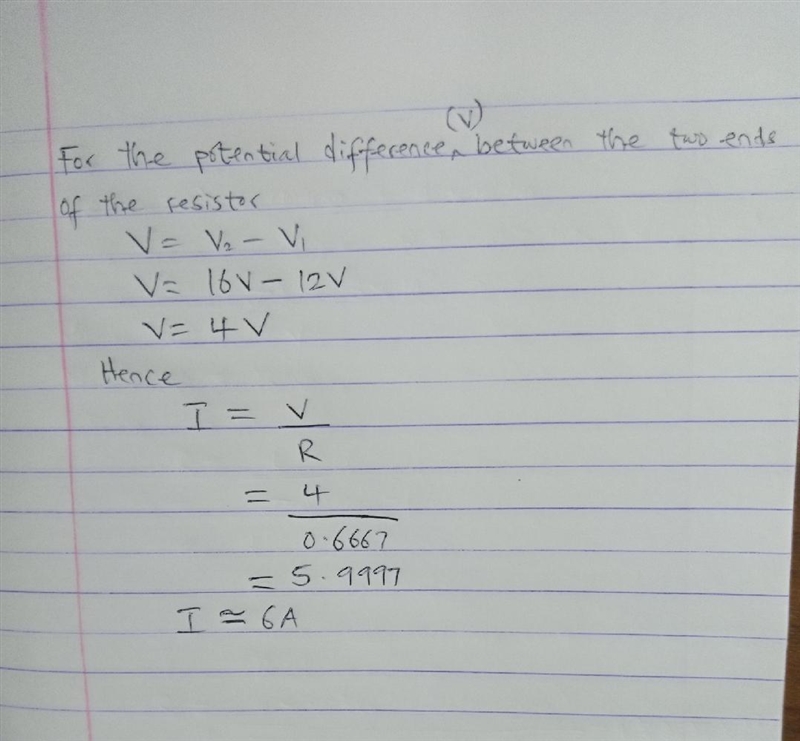 (V)
For the potential difference ^ between the two ends
of the resistor
V = V₂ - V₁
V = 16V - 12V
V = 4V
Hence
I = V
R
= 4
0.6667
= 5.9997
I ≃ 6A